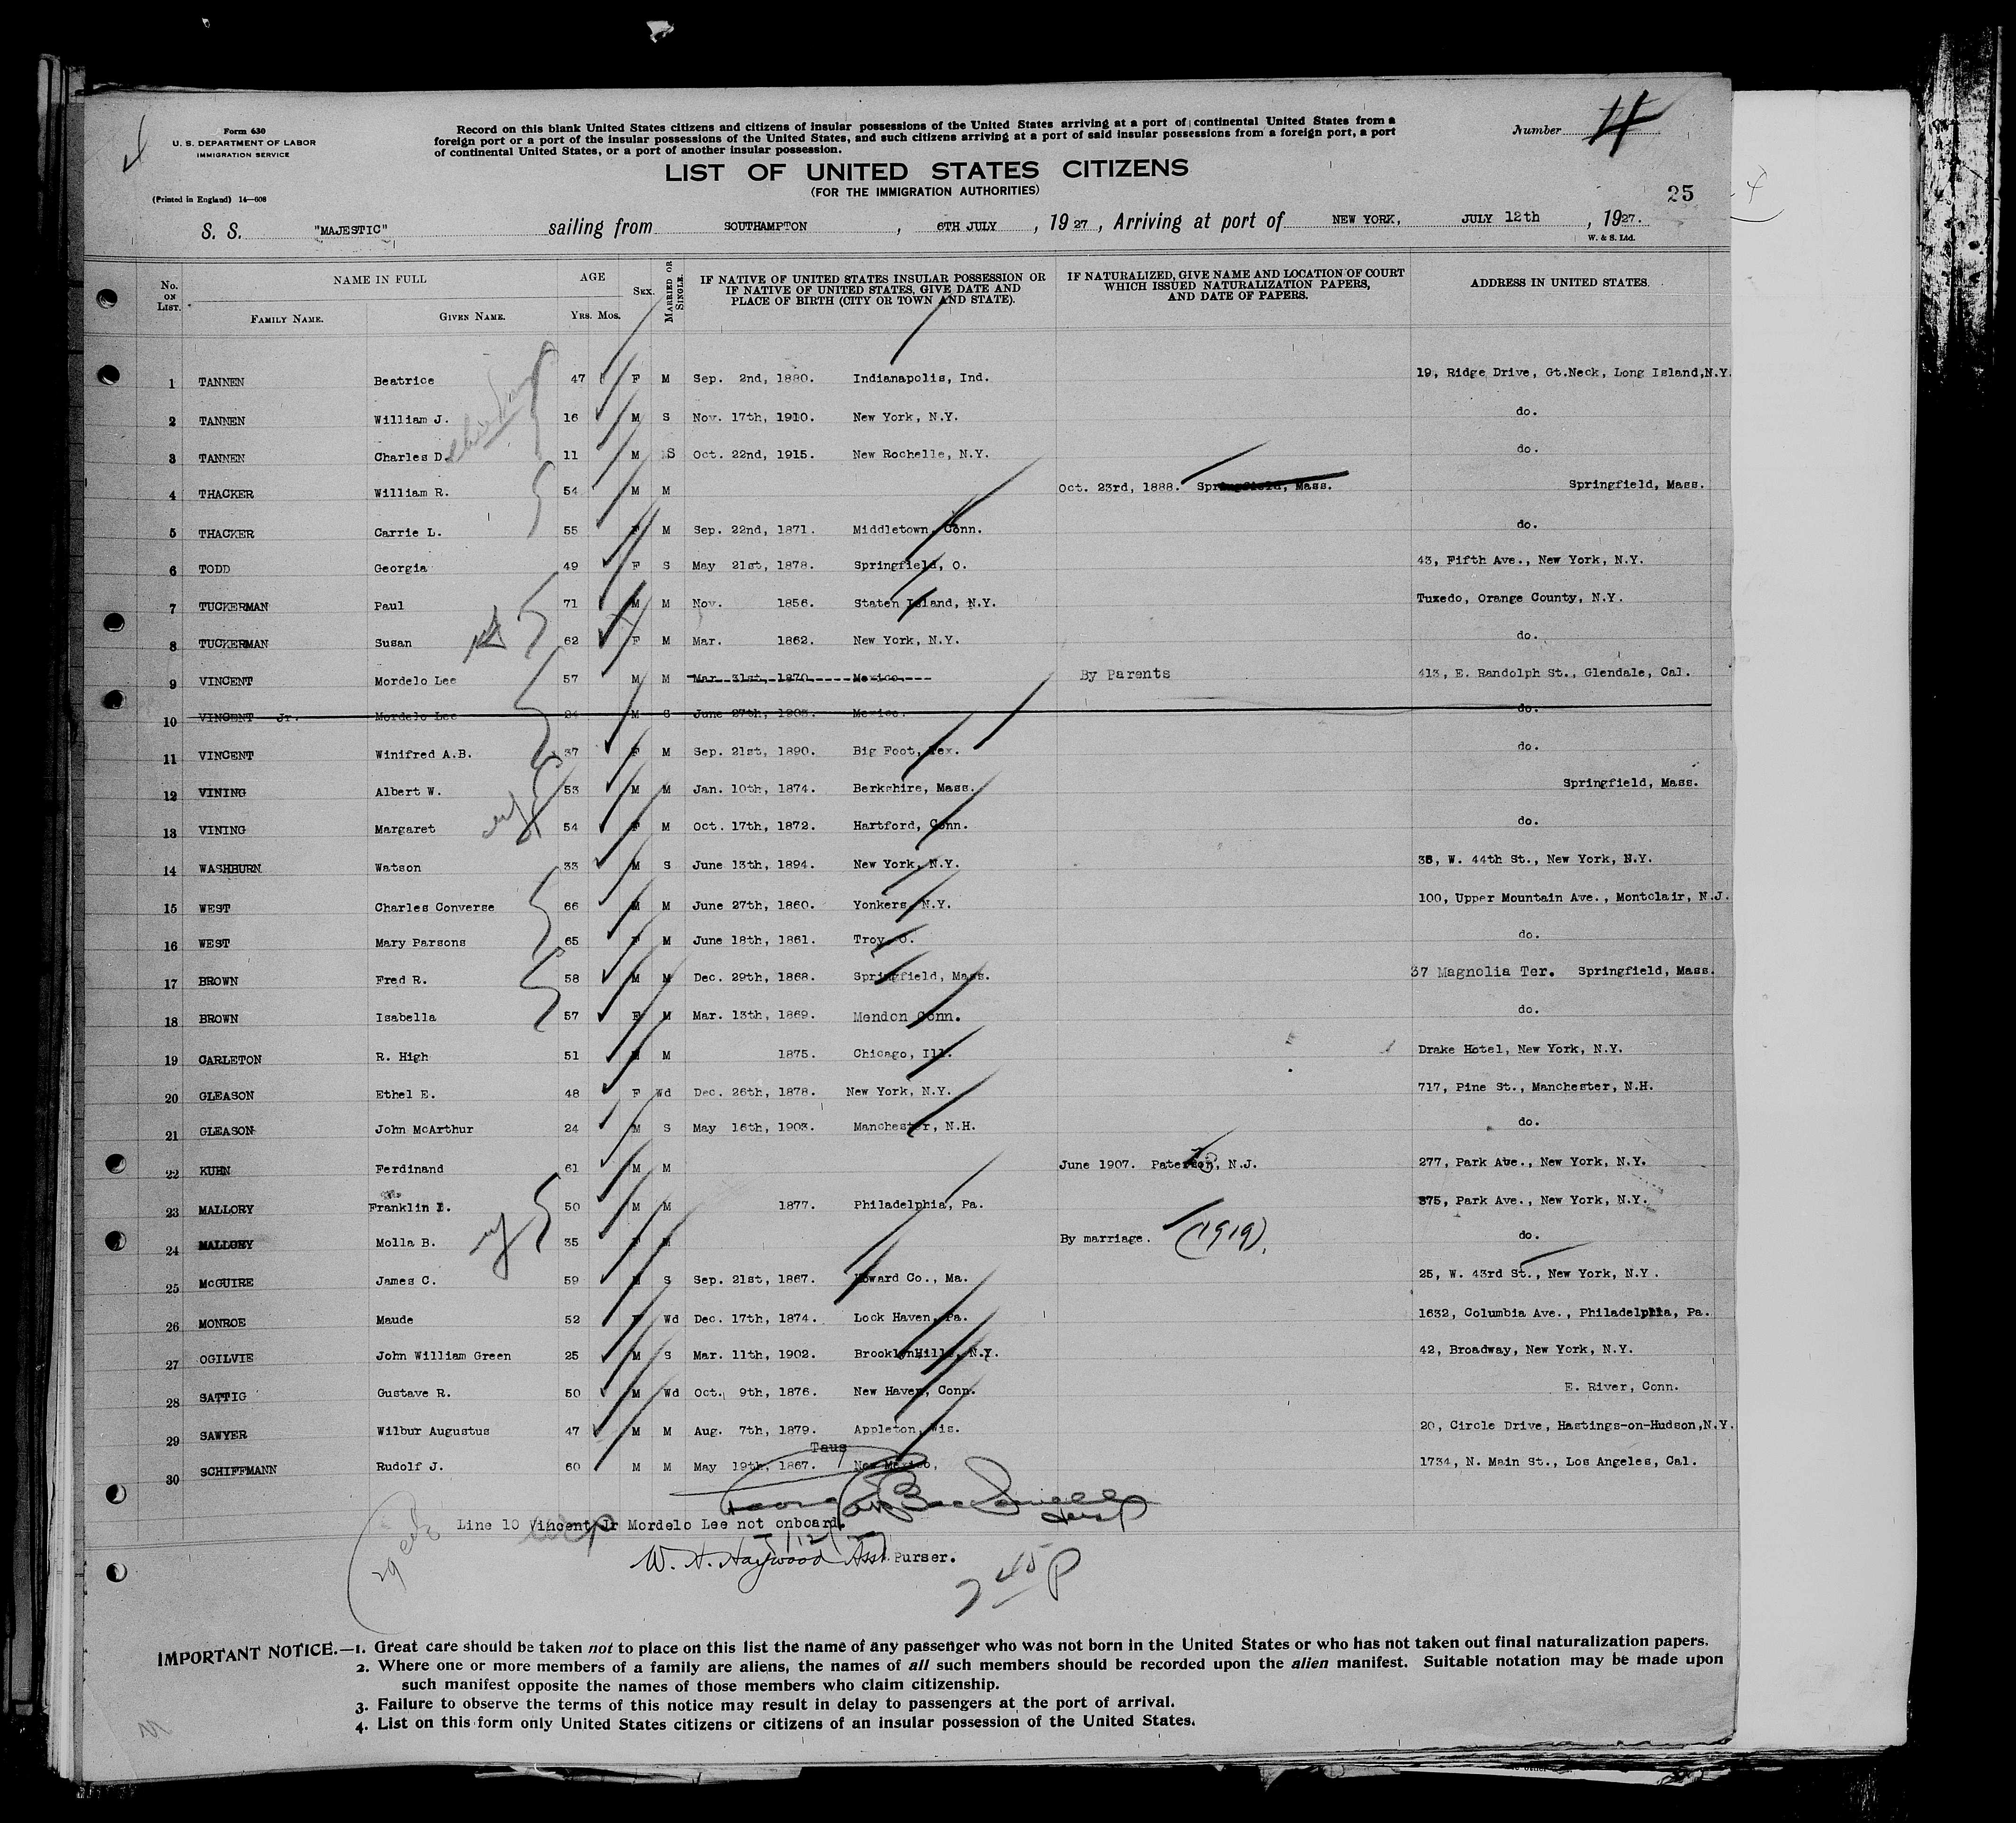 Form 630
U. S. DEPARTMENT OF LABOR
IMMIGRATION SERVICE
(Printed in England) 14—608
Record on this blank United States citizens and citizens of insular possessions of the United States arriving at a port of continental United States from a
foreign port or a port of the insular possessions of the United States, and such citizens arriving at a port of said insular possessions from a foreign port, a port
of continental United States, or a port of another insular possession.
Number 4
LIST OF UNITED STATES CITIZENS
(FOR THE IMMIGRATION AUTHORITIES)
25
S. S. "MAJESTIC" sailing from SOUTHAMPTON, 6TH JULY, 1927, Arriving at port of NEW YORK, JULY 12th, 1927.
W. & S. Ltd.
No. ON LIST. NAME IN FULL AGE SEX. MARRIED OR SINGLE. IF NATIVE OF UNITED STATES INSULAR POSSESSION OR IF NATIVE OF UNITED STATES, GIVE DATE AND PLACE OF BIRTH (CITY OR TOWN AND STATE). IF NATURALIZED, GIVE NAME AND LOCATION OF COURT WHICH ISSUED NATURALIZATION PAPERS, AND DATE OF PAPERS. ADDRESS IN UNITED STATES.
FAMILY NAME. GIVEN NAME. YRS. MOS.
1 TANNEN Beatrice 47 F M Sep. 2nd, 1880. Indianapolis, Ind. 19, Ridge Drive, Gt.Neck, Long Island,N.Y.
2 TANNEN William J. 16 M S Nov. 17th, 1910. New York, N.Y. do.
3 TANNEN Charles D. 11 M S Oct. 22nd, 1915. New Rochelle, N.Y. do.
4 THACKER William R. 54 M M Oct. 23rd, 1888. Springfield, Mass. Springfield, Mass.
5 THACKER Carrie L. 55 F M Sep. 22nd, 1871. Middletown, Conn. do.
6 TODD Georgia 49 F S May 21st, 1878. Springfield, O. 43, Fifth Ave., New York, N.Y.
7 TUCKERMAN Paul 71 M M Nov. 1856. Staten Island, N.Y. Tuxedo, Orange County, N.Y.
8 TUCKERMAN Susan 62 F M Mar. 1862. New York, N.Y. do.
9 VINCENT Mordelo Lee 57 M M Mar. 31st, 1870. Mexico. By Parents 413, E. Randolph St., Glendale, Cal.
10 VINCENT Jr. Mordelo Lee 24 M S June 27th, 1903. Mexico. do.
11 VINCENT Winifred A.B. 37 F M Sep. 21st, 1890. Big Foot, Tex. do.
12 VINING Albert W. 53 M M Jan. 10th, 1874. Berkshire, Mass. Springfield, Mass.
13 VINING Margaret 54 F M Oct. 17th, 1872. Hartford, Conn. do.
14 WASHBURN Watson 33 M S June 13th, 1894. New York, N.Y. 36, W. 44th St., New York, N.Y.
15 WEST Charles Converse 66 M M June 27th, 1860. Yonkers, N.Y. 100, Upper Mountain Ave., Montclair, N.J.
16 WEST Mary Parsons 65 F M June 18th, 1861. Troy, O. do.
17 BROWN Fred R. 58 M M Dec. 29th, 1868. Springfield, Mass. 37 Magnolia Ter. Springfield, Mass.
18 BROWN Isabella 57 F M Mar. 13th, 1869. Mendon Conn. do.
19 CARLETON R. High 51 M M 1875. Chicago, Ill. Drake Hotel, New York, N.Y.
20 GLEASON Ethel E. 48 F Wd Dec. 26th, 1878. New York, N.Y. 717, Pine St., Manchester, N.H.
21 GLEASON John McArthur 24 M S May 16th, 1903. Manchester, N.H. do.
22 KUHN Ferdinand 61 M M June 1907. Paterson, N.J. 277, Park Ave., New York, N.Y.
23 MALLORY Franklin I. 50 M M 1877. Philadelphia, Pa. 375, Park Ave., New York, N.Y.
24 MALLORY Molla B. 35 F M By marriage. (1919). do.
25 McGUIRE James C. 59 M S Sep. 21st, 1867. Howard Co., Ma. 25, W. 43rd St., New York, N.Y.
26 MONROE Maude 52 F Wd Dec. 17th, 1874. Lock Haven, Pa. 1632, Columbia Ave., Philadelphia, Pa.
27 OGILVIE John William Green 25 M S Mar. 11th, 1902. BrooklynHills, N.Y. 42, Broadway, New York, N.Y.
28 SATTIG Gustave R. 50 M Wd Oct. 9th, 1876. New Haven, Conn. E. River, Conn.
29 SAWYER Wilbur Augustus 47 M M Aug. 7th, 1879. Appleton, Wis. 20, Circle Drive, Hastings-on-Hudson,N.Y.
Taus
30 SCHIFFMANN Rudolf J. 60 M M May 19th, 1867. New Mexico, 1734, N. Main St., Los Angeles, Cal.
Line 10 Vincent Jr Mordelo Lee not onboard.
W. H. Haywood Asst Purser.
7 45 P
IMPORTANT NOTICE.—1. Great care should be taken not to place on this list the name of any passenger who was not born in the United States or who has not taken out final naturalization papers.
2. Where one or more members of a family are aliens, the names of all such members should be recorded upon the alien manifest. Suitable notation may be made upon
such manifest opposite the names of those members who claim citizenship.
3. Failure to observe the terms of this notice may result in delay to passengers at the port of arrival.
4. List on this form only United States citizens or citizens of an insular possession of the United States.